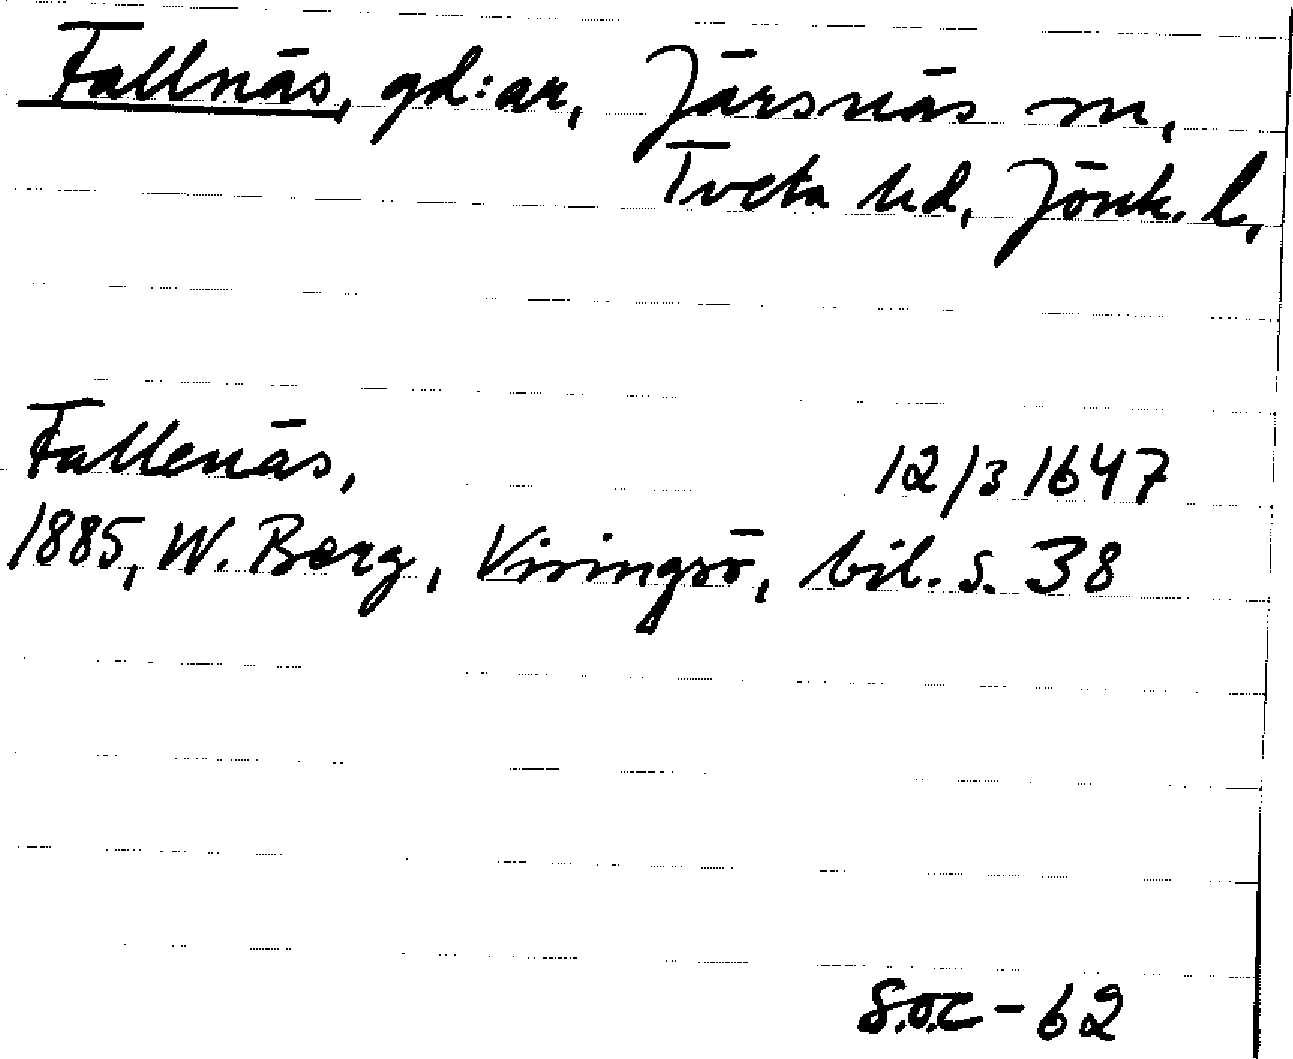 Fallnäs, gd:ar, Järsnäs sn,
Tveta hd, Jönk. l,
Fallenäs, 12/3 1647
1885, W. Berg, Visingsö, bil. s. 38
S.O.C - 62